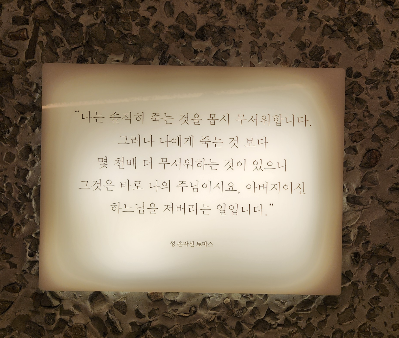 "나는 솔직히 죽는 것을 몹시 무서워합니다.
그러나 나에게 죽는 것 보다
몇 천배 더 무서워하는 것이 있으니
그것은 바로 나의 주님이시요, 아버지이신
하느님을 저버리는 일입니다."